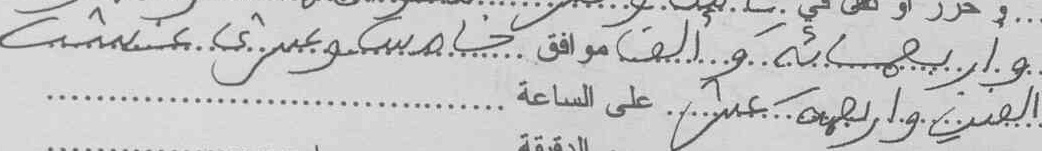 و حرر أو في
وأربعمائة وألف موافق خامس وعشري غشت
الفين واربعة عشر على الساعة
الدقيقة